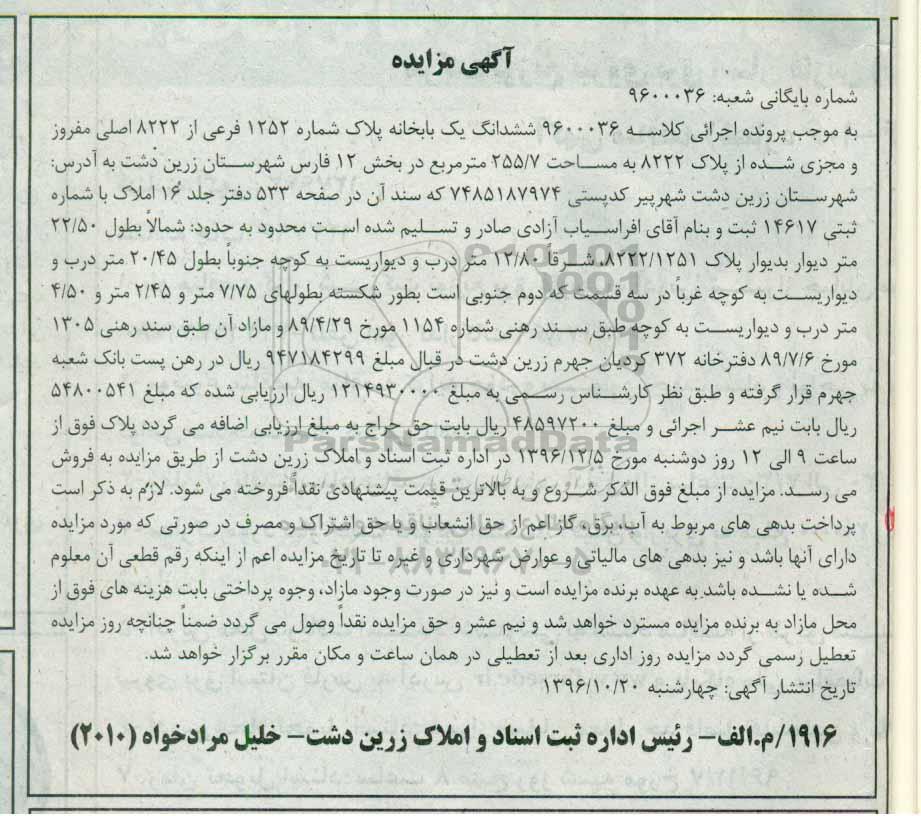 آگهی مزایده
شماره بایگانی شعبه: ۹۶۰۰۰۳۶
به موجب پرونده اجرائی کلاسه ۹۶۰۰۰۳۶ ششدانگ یک بابخانه پلاک شماره ۱۲۵۲ فرعی از ۸۲۲۲ اصلی مفروز
و مجزی شده از پلاک ۸۲۲۲ به مساحت ۲۵۵/۷ مترمربع در بخش ۱۲ فارس شهرستان زرین دشت به آدرس:
شهرستان زرین دشت شهرپیر کدپستی ۷۴۸۵۱۸۷۹۷۴ که سند آن در صفحه ۵۳۳ دفتر جلد ۱۶ املاک با شماره
ثبتی ۱۴۶۱۷ ثبت و بنام آقای افراسیاب آزادی صادر و تسلیم شده است محدود به حدود: شمالاً بطول ۲۲/۵۰
متر دیوار بدیوار پلاک ۸۲۲۲/۱۲۵۱. شرقاً ۱۲/۸۰ متر درب و دیواریست به کوچه جنوباً بطول ۲۰/۴۵ متر درب و
دیواریست به کوچه غرباً در سه قسمت که دوم جنوبی است بطور شکسته بطولهای ۷/۷۵ متر و ۲/۴۵ متر و ۴/۵۰
متر درب و دیواریست به کوچه طبق سند رهنی شماره ۱۱۵۴ مورخ ۸۹/۴/۲۹ و مازاد آن طبق سند رهنی ۱۳۰۵
مورخ ۸۹/۷/۶ دفترخانه ۳۷۲ کردیان جهرم زرین دشت در قبال مبلغ ۹۴۷۱۸۴۲۹۹ ریال در رهن پست بانک شعبه
جهرم قرار گرفته و طبق نظر کارشناس رسمی به مبلغ ۱۲۱۴۹۳۰۰۰۰ ریال ارزیابی شده که مبلغ ۵۴۸۰۰۵۴۱
ریال بابت نیم عشر اجرائی و مبلغ ۴۸۵۹۷۲۰۰ ریال بابت حق حراج به مبلغ ارزیابی اضافه می گردد پلاک فوق از
ساعت ۹ الی ۱۲ روز دوشنبه مورخ ۱۳۹۶/۱۲/۵ در اداره ثبت اسناد و املاک زرین دشت از طریق مزایده به فروش
می رسد. مزایده از مبلغ فوق الذکر شروع و به بالاترین قیمت پیشنهادی نقداً فروخته می شود. لازم به ذکر است
پرداخت بدهی های مربوط به آب، برق، گاز اعم از حق انشعاب و یا حق اشتراک و مصرف در صورتی که مورد مزایده
دارای آنها باشد و نیز بدهی های مالیاتی و عوارض شهرداری و غیره تا تاریخ مزایده اعم از اینکه رقم قطعی آن معلوم
شده یا نشده باشد به عهده برنده مزایده است و نیز در صورت وجود مازاد، وجوه پرداختی بابت هزینه های فوق از
محل مازاد به برنده مزایده مسترد خواهد شد و نیم عشر و حق مزایده نقداً وصول می گردد ضمناً چنانچه روز مزایده
تعطیل رسمی گردد مزایده روز اداری بعد از تعطیلی در همان ساعت و مکان مقرر برگزار خواهد شد.
تاریخ انتشار آگهی: چهارشنبه ۱۳۹۶/۱۰/۲۰
۱۹۱۶/م.الف- رئیس اداره ثبت اسناد و املاک زرین دشت- خلیل مرادخواه (۲۰۱۰)
ParsNamadData